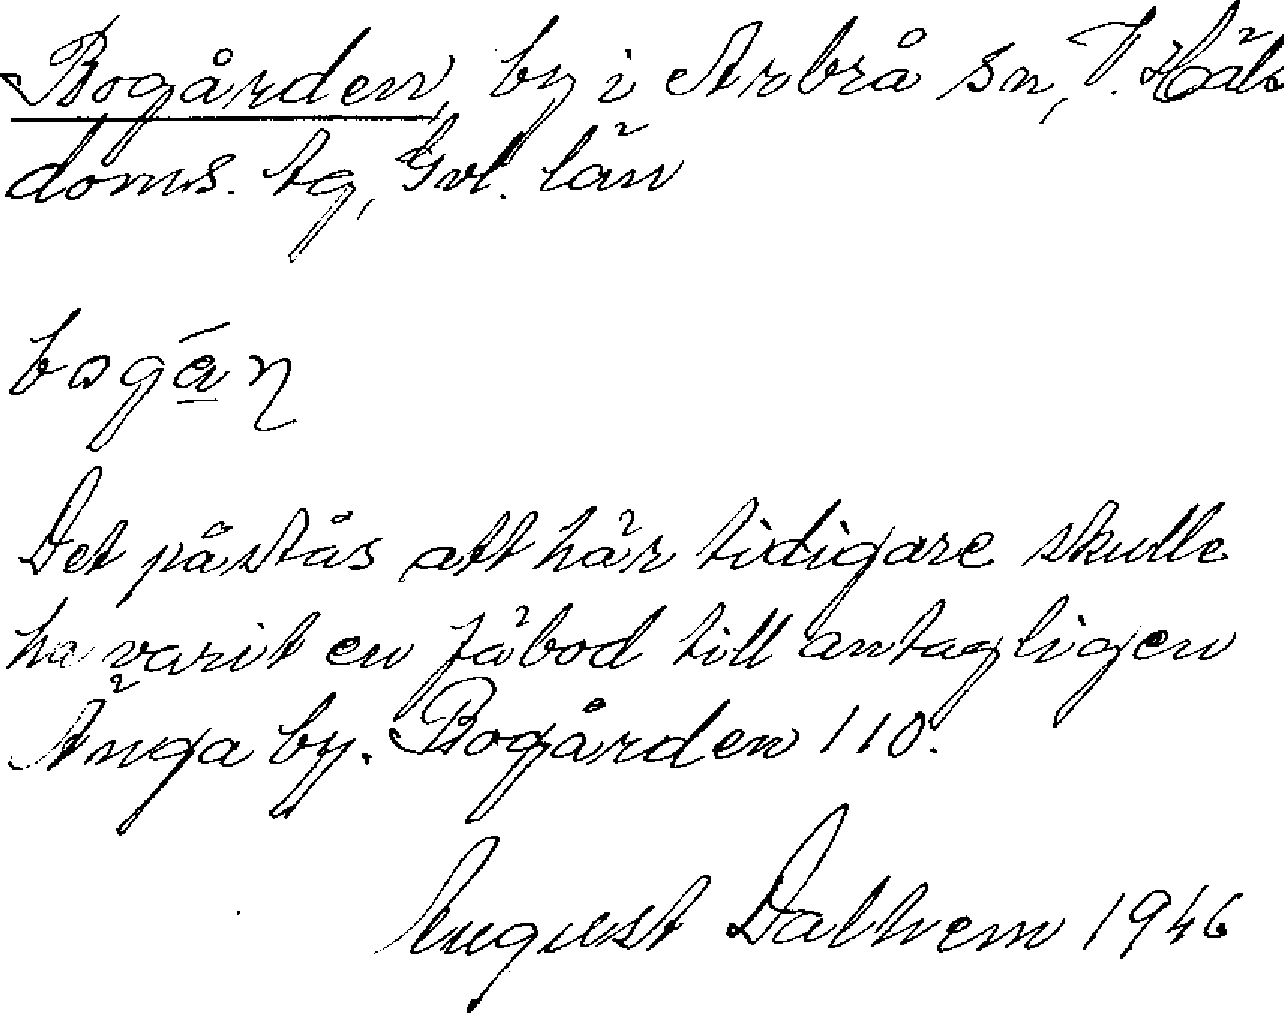 Bogården, by i Arbrå sn, V. Häls
doms. tg, Gvl. län
Det påstås att här tidigare skulle
ha varit en fäbod till antagligen
Änga by. Bogården 110.
August Dalhem 1946